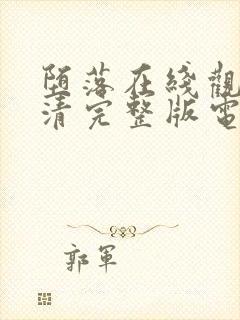 堕落在綫觀
清完整版電
郭軍